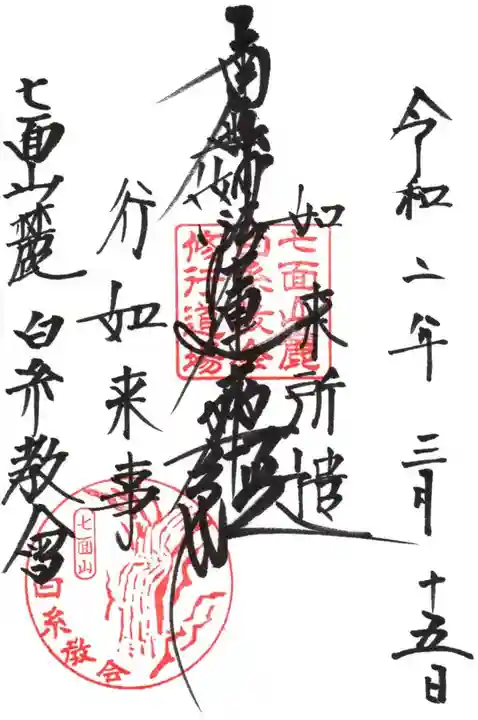 令和二年三月十五日
如来所遣
南無妙法蓮華経
行如来事
七面山麓 白糸教會
七面山麓
白糸教会
修行道場
七面山
白糸教会